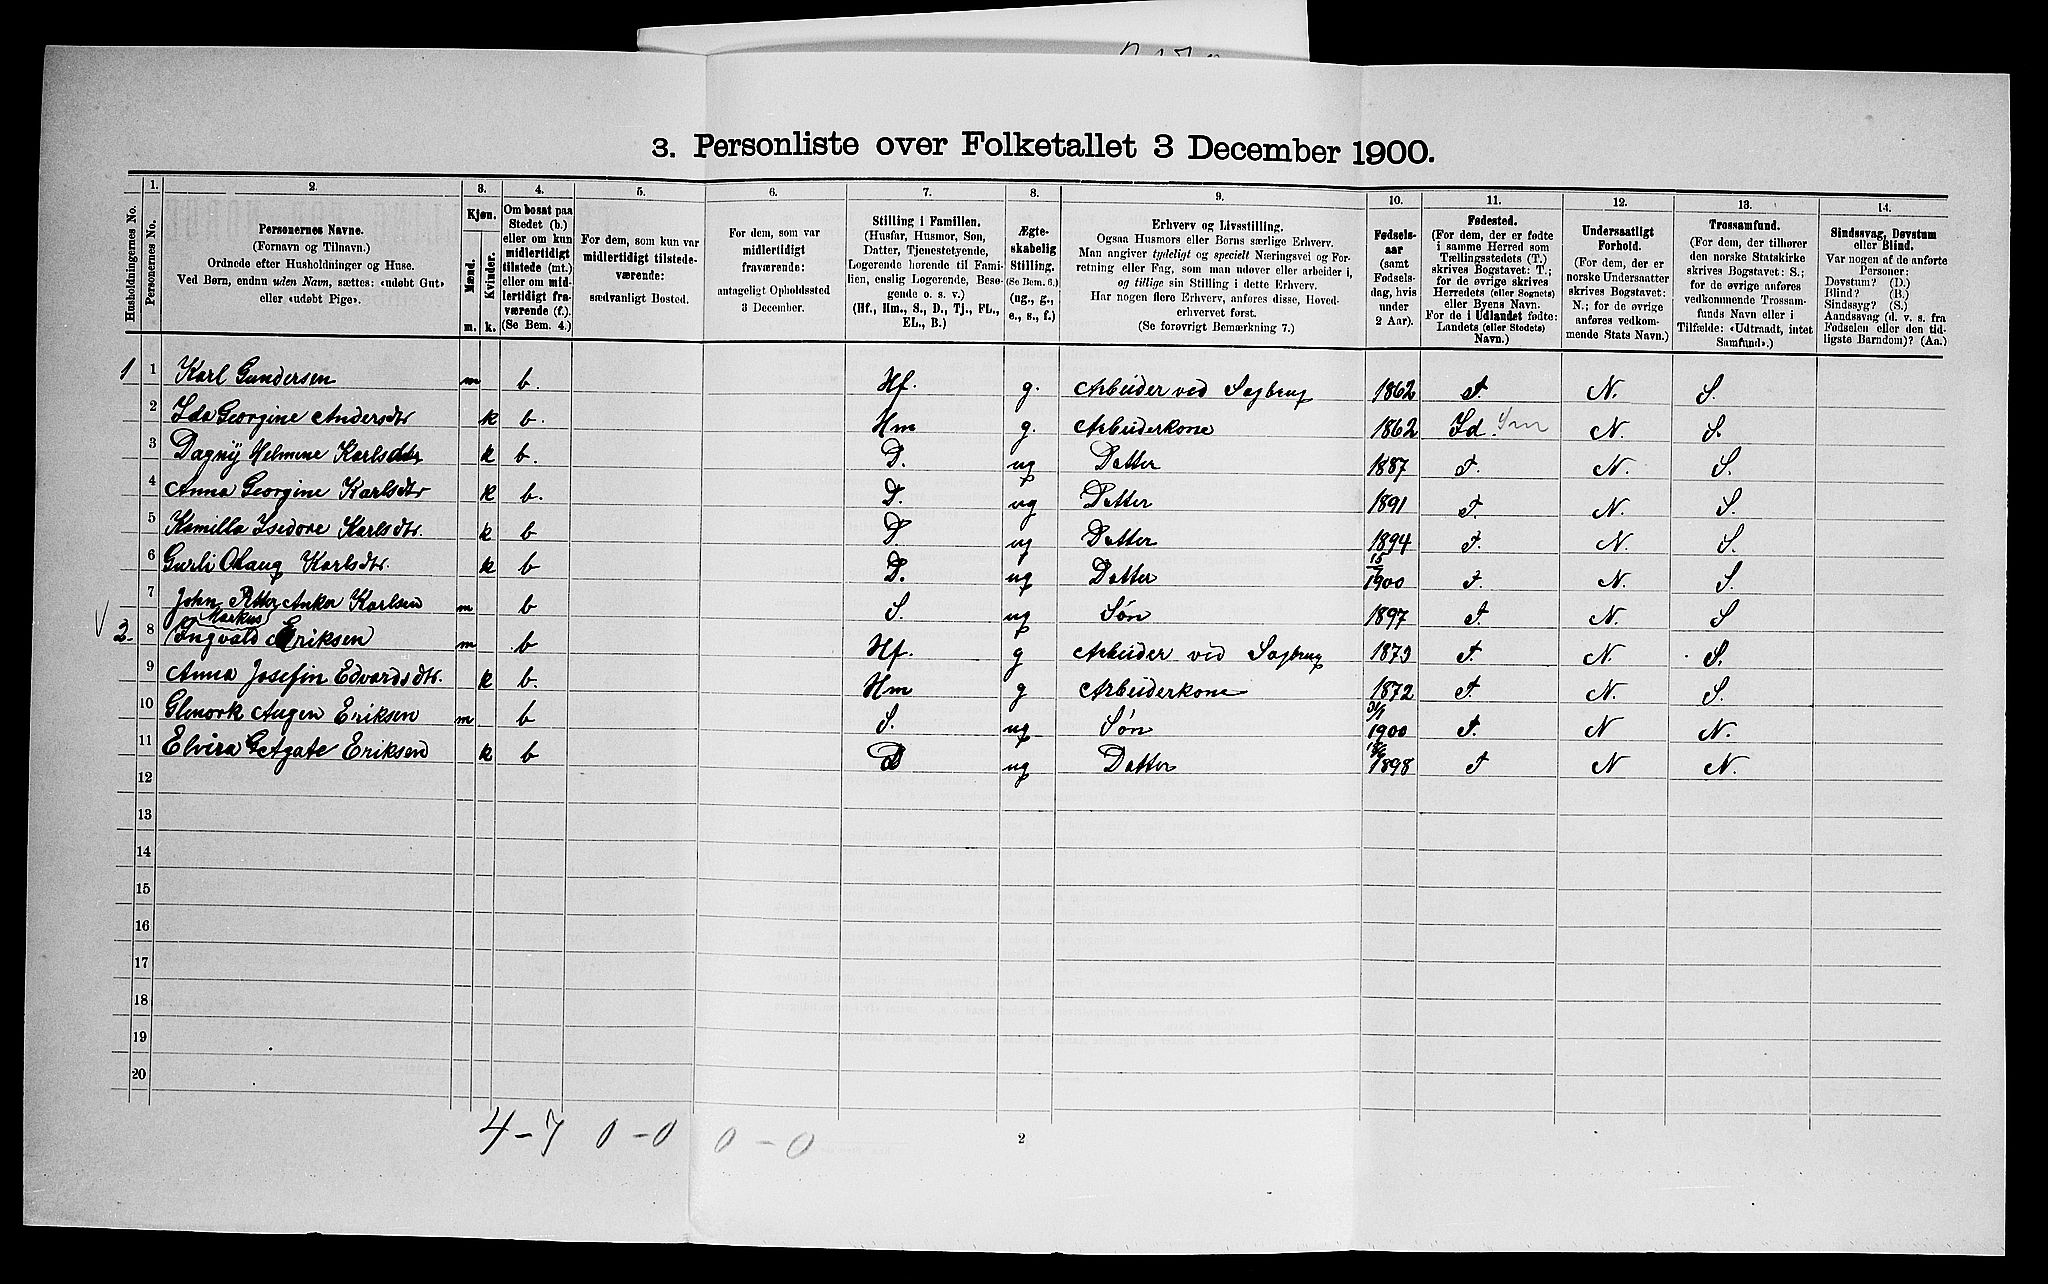 3. Personliste over Folketallet 3 December 1900.
Husholdningernes No.
1.
Personernes No.
2.
Personernes Navne.
(Fornavn og Tilnavn.)
Ordnede efter Husholdninger og Huse.
Ved Børn, endnu uden Navn, sættes: «udøbt Gut»
eller «udøbt Pige».
3.
Kjøn.
Mænd.
Kvinder.
m. k.
4.
Om bosat paa
Stedet (b.)
eller om kun
midlertidigt
tilstede (mt.)
eller om mid-
lertidigt fra-
værende (f.).
(Se Bem. 4.)
5.
For dem, som kun var
midlertidigt tilstede-
værende:
sædvanligt Bosted.
6.
For dem, som var
midlertidigt
fraværende:
antageligt Opholdssted
3 December.
7.
Stilling i Familien.
(Husfar, Husmor, Søn,
Datter, Tjenestetyende,
Logerende hørende til Fami-
lien, enslig Logerende, Besø-
gende o. s. v.)
(Hf., Hm., S., D., Tj., FL.,
EL., B.)
8.
Ægte-
skabelig
Stilling.
(Se Bem. 6.)
(ug., g.,
e., s., f.)
9.
Erhverv og Livsstilling.
Ogsaa Husmors eller Børns særlige Erhverv.
Man angiver tydeligt og specielt Næringsvei og For-
retning eller Fag, som man udøver eller arbeider i,
og tillige sin Stilling i dette Erhverv.
Har nogen flere Erhverv, anføres disse, Hoved-
erhvervet først.
(Se forøvrigt Bemærkning 7.)
10.
Fødsels-
aar
(samt
Fødsels-
dag, hvis
under
2 Aar).
11.
Fødested.
(For dem, der er fødte
i samme Herred som
Tællingsstedets (T.)
skrives Bogstavet: T.;
for de øvrige skrives
Herredets (eller Sognets)
eller Byens Navn.
For de i Udlandet fødte:
Landets (eller Stedets)
Navn.)
12.
Undersaatligt
Forhold.
(For dem, der er
norske Undersaatter
skrives Bogstavet:
N.; for de øvrige
anføres vedkom-
mende Stats Navn.)
13.
Trossamfund.
(For dem, der tilhører
den norske Statskirke
skrives Bogstavet: S.;
for de øvrige anføres
vedkommende Trossam-
funds Navn eller i
Tilfælde: «Udtraadt, intet
Samfund».)
14.
Sindssvag, Døvstum
eller Blind.
Var nogen af de anførte
Personer:
Døvstum? (D.)
Blind? (B.)
Sindssyg? (S.)
Aandssvag (d. v. s. fra
Fødselen eller den tid-
ligste Barndom)? (Aa.)
1 1 Karl Gundersen m b. Hf. g. Arbeider ved Sagbrug 1862 T. N. S.
2 Ida Georgine Andersdtr k b. Hm g. Arbeiderkone 1862 Id N. S.
3 Dagny Helmine Karlsdtr k b. D. ug Datter 1887 T. N. S.
4 Anna Georgine Karlsdtr k b. D. ug Datter 1891 T. N. S.
5 Kamilla Isedore Karlsdtr. k b D. ug Datter 1894 T. N. S.
6 Gurli Olaug Karlsdtr. k b D. ug Datter 1900 T. N. S.
7 John Petter Anker Karlsen m b S. ug Søn 1897 T. N. S
Markus
2. 8 Ingvald Eriksen m b Hf. g Arbeider ved Sagbrug 1873 T. N. S.
9 Anna Josefin Edvardsdtr. k b. Hm g Arbeiderkone 1872 T. N. S.
10 Glenork Augen Eriksen m b S. ug Søn 1900 T. N N.
11 Elvira Agate Eriksen k b D ug Datter 1898 T N N.
12
13
14
15
16
17
18
19
20
4 - 7 0 - 0 0 - 0
2